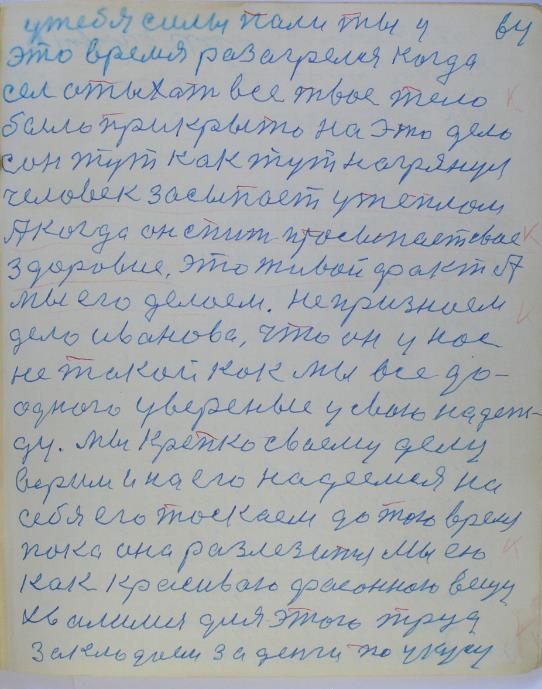 утебя силы пали ты у 64
это время разагрелся когда
сел отыхат все твое тело
было прикрыто на это дело
сон тут как тут нагрянул
человек засыпает утеплом
А когда он спит просыпает свае
здоровие. это живой факт А
мы его делаем. непризнаем
дело иванова, что он у нас
не такой как мы все до-
одного увереные усвою надеж-
ду. мы крепко своему делу
верим и на его надеемся на
себя его тоскаем до того время
пока она разлезится мы ею
как красиваю фасонною вещу
хвалимся для этого труд
закладаем за денги по укусу